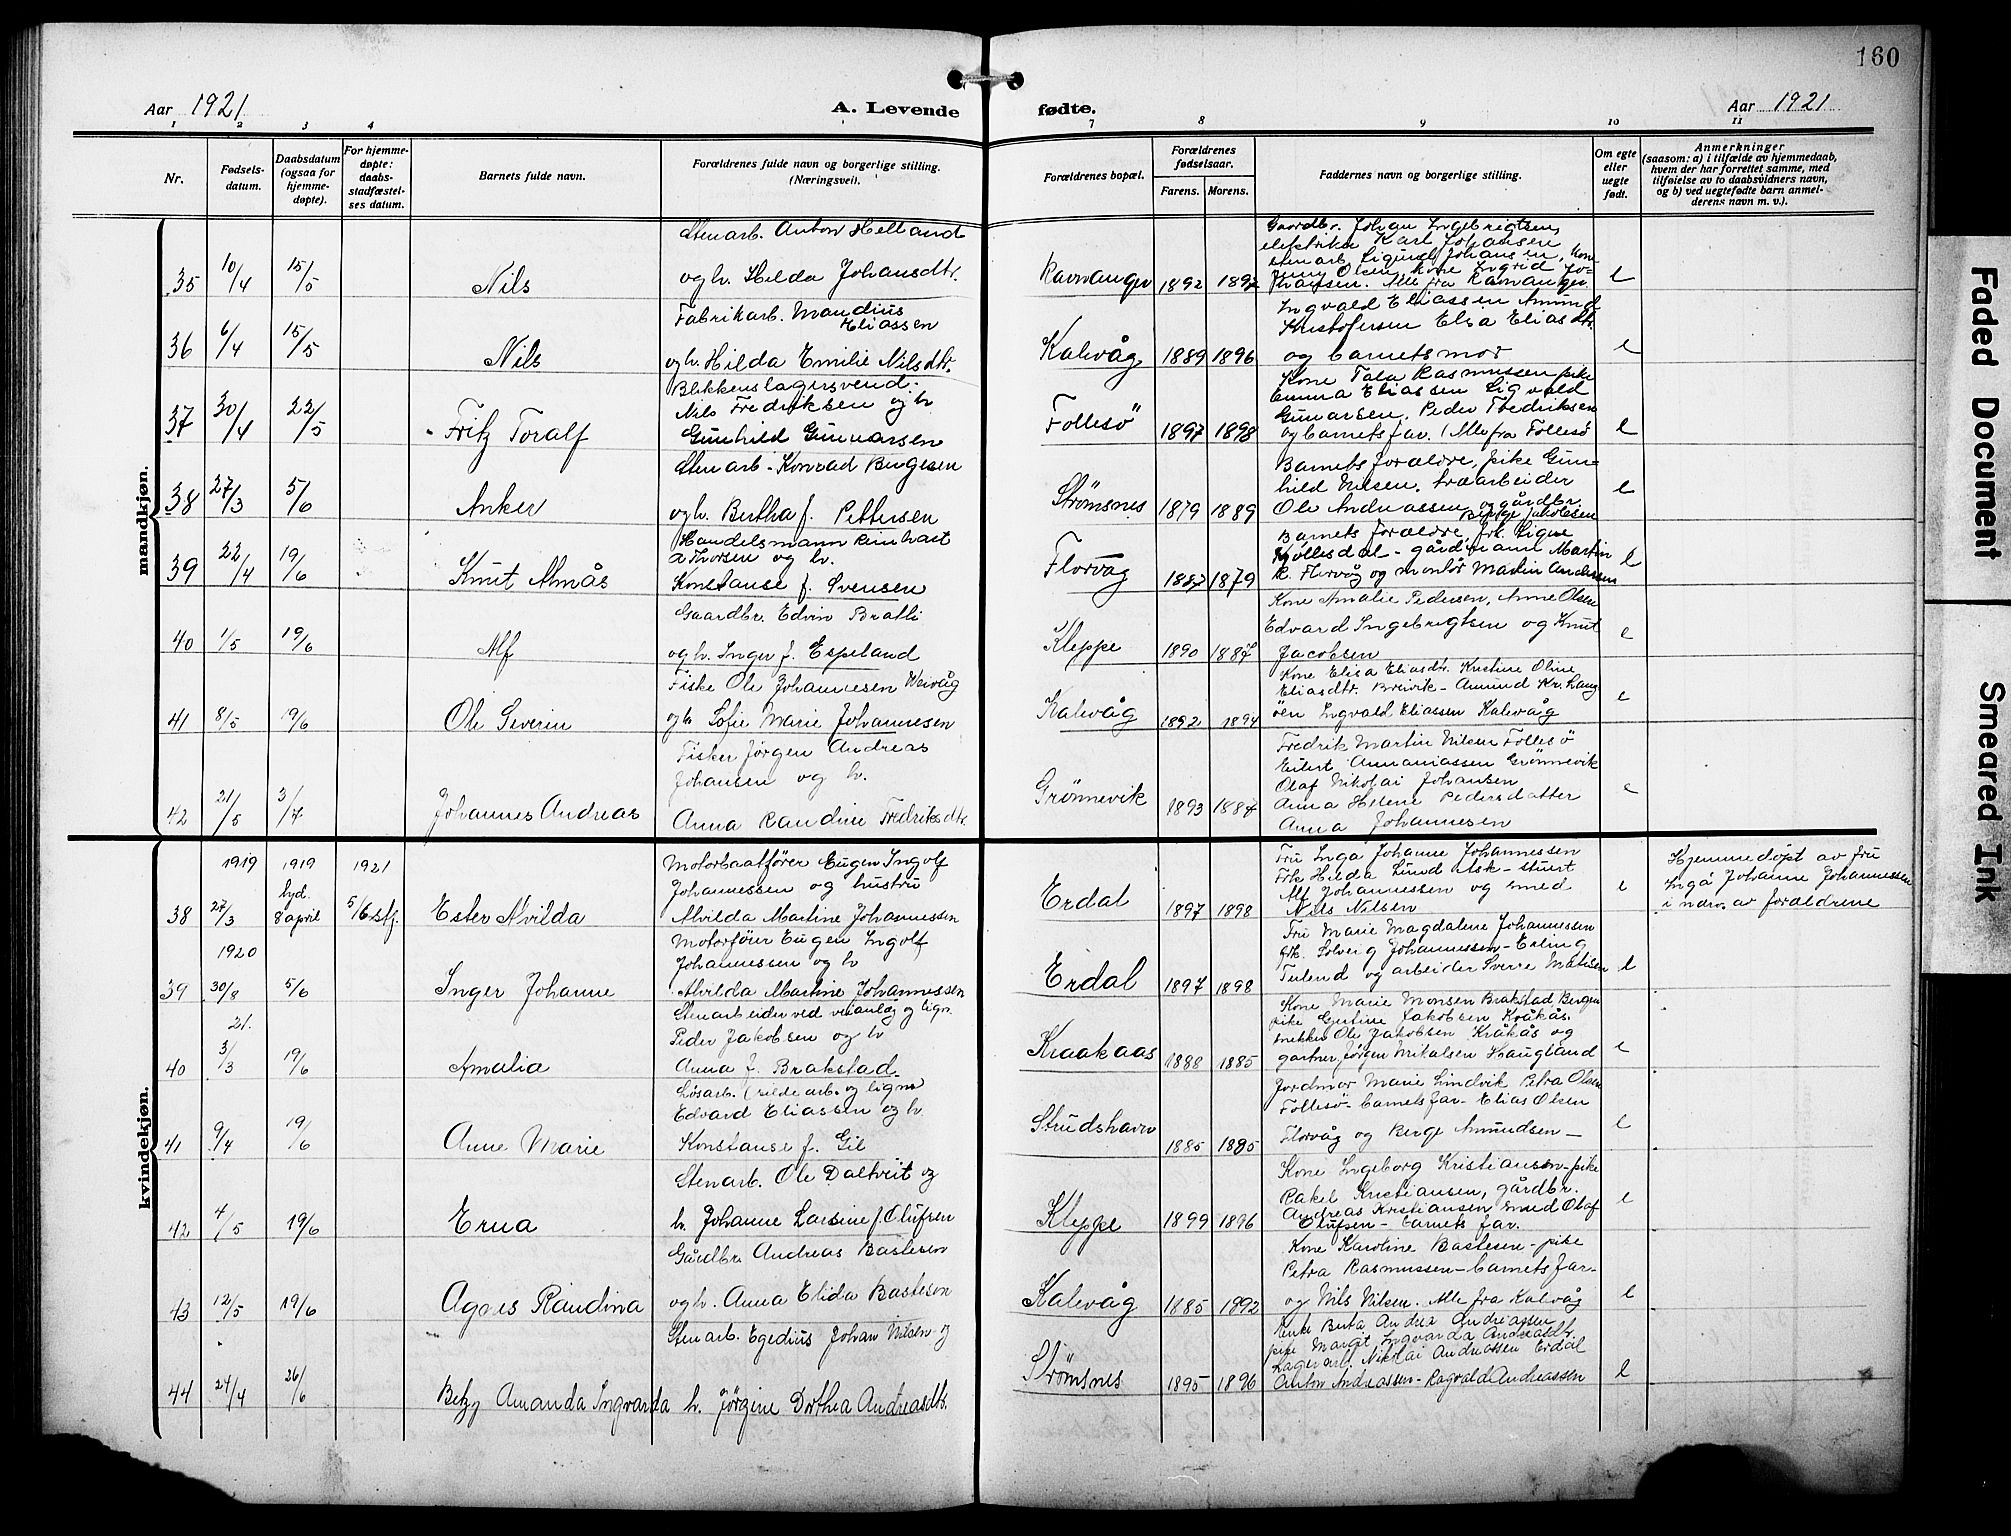 160
Aar 1921
A. Levende
fødte.
Aar 1921
1 2 3 4
7 8 9 10 11
Nr.
Fødsels-
datum.
Daabsdatum
(ogsaa for
hjemme-
døpte).
For hjemme-
døpte:
daabs-
stadfæstel-
ses datum.
Barnets fulde navn.
Forældrenes fulde navn og borgerlige stilling.
(Næringsvei).
Forældrenes bopæl.
Forældrenes
fødselsaar.
Farens. Morens.
Faddernes navn og borgerlige stilling.
Om egte
eller
uegte
født.
Anmerkninger
(saasom: a) i tilfælde av hjemmedaab,
hvem der har forrettet samme, med
tilføielse av to daabsvidners navn,
og b) ved uegtefødte barn anmel-
derens navn m. v.).
mandkjøn.
35 10/4 15/5 Nils
Stenarb. Anton Helland
og h. Hilda Johansdtr.
Ravnanger 1892 1892
Gaardbr. Johan Ingebrigtsen,
elektriker Karl Johansen
stenarb. Sigurd Johansen, Kone
Jenny Olsen, Kone Ingrid Jo-
hansen. Alle fra Ravnanger.
e
36 6/4 15/5 Nils
Fabrikarb. Mandius
Eliassen
og h. Hilda Emilie Nilsdtr.
Kalvåg 1889 1896
Ingvald Eliassen Amund
Kristofersen Elsa Eliasdtr.
og barnets mor
e
37 30/4 22/5 Fritz Toralf
Blikkenslagersvend.
Nils Fredriksen og h.
Gunhild Gunnarsen
Follesö 1897 1898
Kone Tala Rasmussen pike
Emma Eliassen Sigvald
Gunarsen. Peder Fredriksen
og barnets far. (Alle fra Follesö
e
38 27/3 5/6 Anker
Stenarb. Konrad Birgesen
og h. Bertha f. Pettersen
Strømsnes 1879 1889
Barnets forældre, pike Gun-
hild Nilsen, træarbeider
Ole Andreassen og gårdbr.
Jakobsen
e
39 22/4 19/6 Knut Almås
Handelsmann Reinhart
A Thorsen og h.
Konstanse f. Svensen
Florvåg 1887 1879
Barnets forældre, frk. Signe
gårdmann Martin
K. Florvåg og montör Martin Andersen
e
40 1/5 19/6 Alf
Gaardbr. Edvin Bratli
og h. Inger f. Espeland
Kleppe 1890 1887
Kone Amalie Pedersen, Anne Olsen
Edvard Ingebrigtsen og Knut
Jacobsen
e
41 8/5 19/6 Ole Severin
Fiske Ole Johannesen
og h. Sofie Marie Johannesen
Kalvåg 1892 1894
Kone Elisa Eliasdtr. Kristine Oline
Eliasdtr. Breivik - Amund Kr. Lang
öen Ingvald Eliassen Kalvåg
e
42 21/5 3/7 Johannes Andreas
Fisker Jørgen Andreas
Johansen og h.
Anna Randine Fredriksdtr.
Grønnevik 1893 1887
Fredrik Martin Nilsen Follesö
Eilert Annaniassen Grønnevik
Olaf Nikolai Johansen
Anna Helene Pedersdatter
Anna Johannesen
e
kvindekjøn.
1919 1919 1921
38 27/3 hjd. 8 april 5/6 stf. Ester Alvilda
Motorbaatfører Eugen Ingolf
Johannessen og hustru
Alvilda Martine Johannessen
Erdal 1897 1898
Fru Inga Johanne Johannessen
Frk. Hilda Lund Ask - stuert
Alf Johannessen og smed
Nils Nilsen
e
Hjemmedöpt av fru
Inga Johanne Johannessen
i nærv. av forældrene
1920
39 30/8 5/6 Inger Johanne
Motorfører Eugen Ingolf
Johannessen og h
Alvilda Martine Johannessen
Erdal 1897 1898
Fru Marie Magdalene Johannessen
frk. Solveig Johannessen - Erling
og arbeider Sverre
e
21.
40 3/3 19/6 Amalia
Stenarbeider ved og lign.
Peder Jakobsen og h
Anna f. Brakstad
Kraakaas 1888 1885
Kone Marie Monsen Brakstad Bergen
pike Gjertine Jakobsen Kråkås.
snekker Ole Jakobsen Kråkås og
gartner Jörgen Mikalsen Haugland
e
41 9/4 19/6 Anne Marie
Løsarb. (sildearb. og lign.
Edvard Eliassen og h.
Konstanse f. Gil
Strudshavn 1885 1895
Jordmor Marie Lindvik Petra Olsen
Follesö - barnets far - Elias Olsen
Florvåg og Berge Amundsen -
e
42 4/5 19/6 Erna
Stenarb. Ole Daltveit og
h. Johanne Larsine f. Olufsen
Kleppe 1899 1896
Kone Ingeborg Kristiansen - pike
Rakel Kristiansen, gårdbr.
Andreas Kristiansen smed Olaf
Olufsen - barnets far.
e
43 12/5 19/6 Agnes Randina
Gårdbr. Andreas Bastesen
og h. Anna Elida Bastesen
Kalvåg 1885 1892
Kone Karoline Bastesen - pike
Petra Rasmussen - barnets far -
og Nils Nilsen. Alle fra Kalvåg
e
44 24/4 26/6 Betzy Amanda Ingvarda
Stenarb. Egedius Johan Nilsen og
h. Jörgine Dorthea Andreasdtr.
Strømsnes 1895 1896
Enke Berta Andrea Andreassen
pike Margit Ingvarda Andreasdtr.
Lagerarb. Nikolai Andreassen Erdal
Anton Andreassen - Ragvald Andreassen
e
Faded Document
Smeared Ink